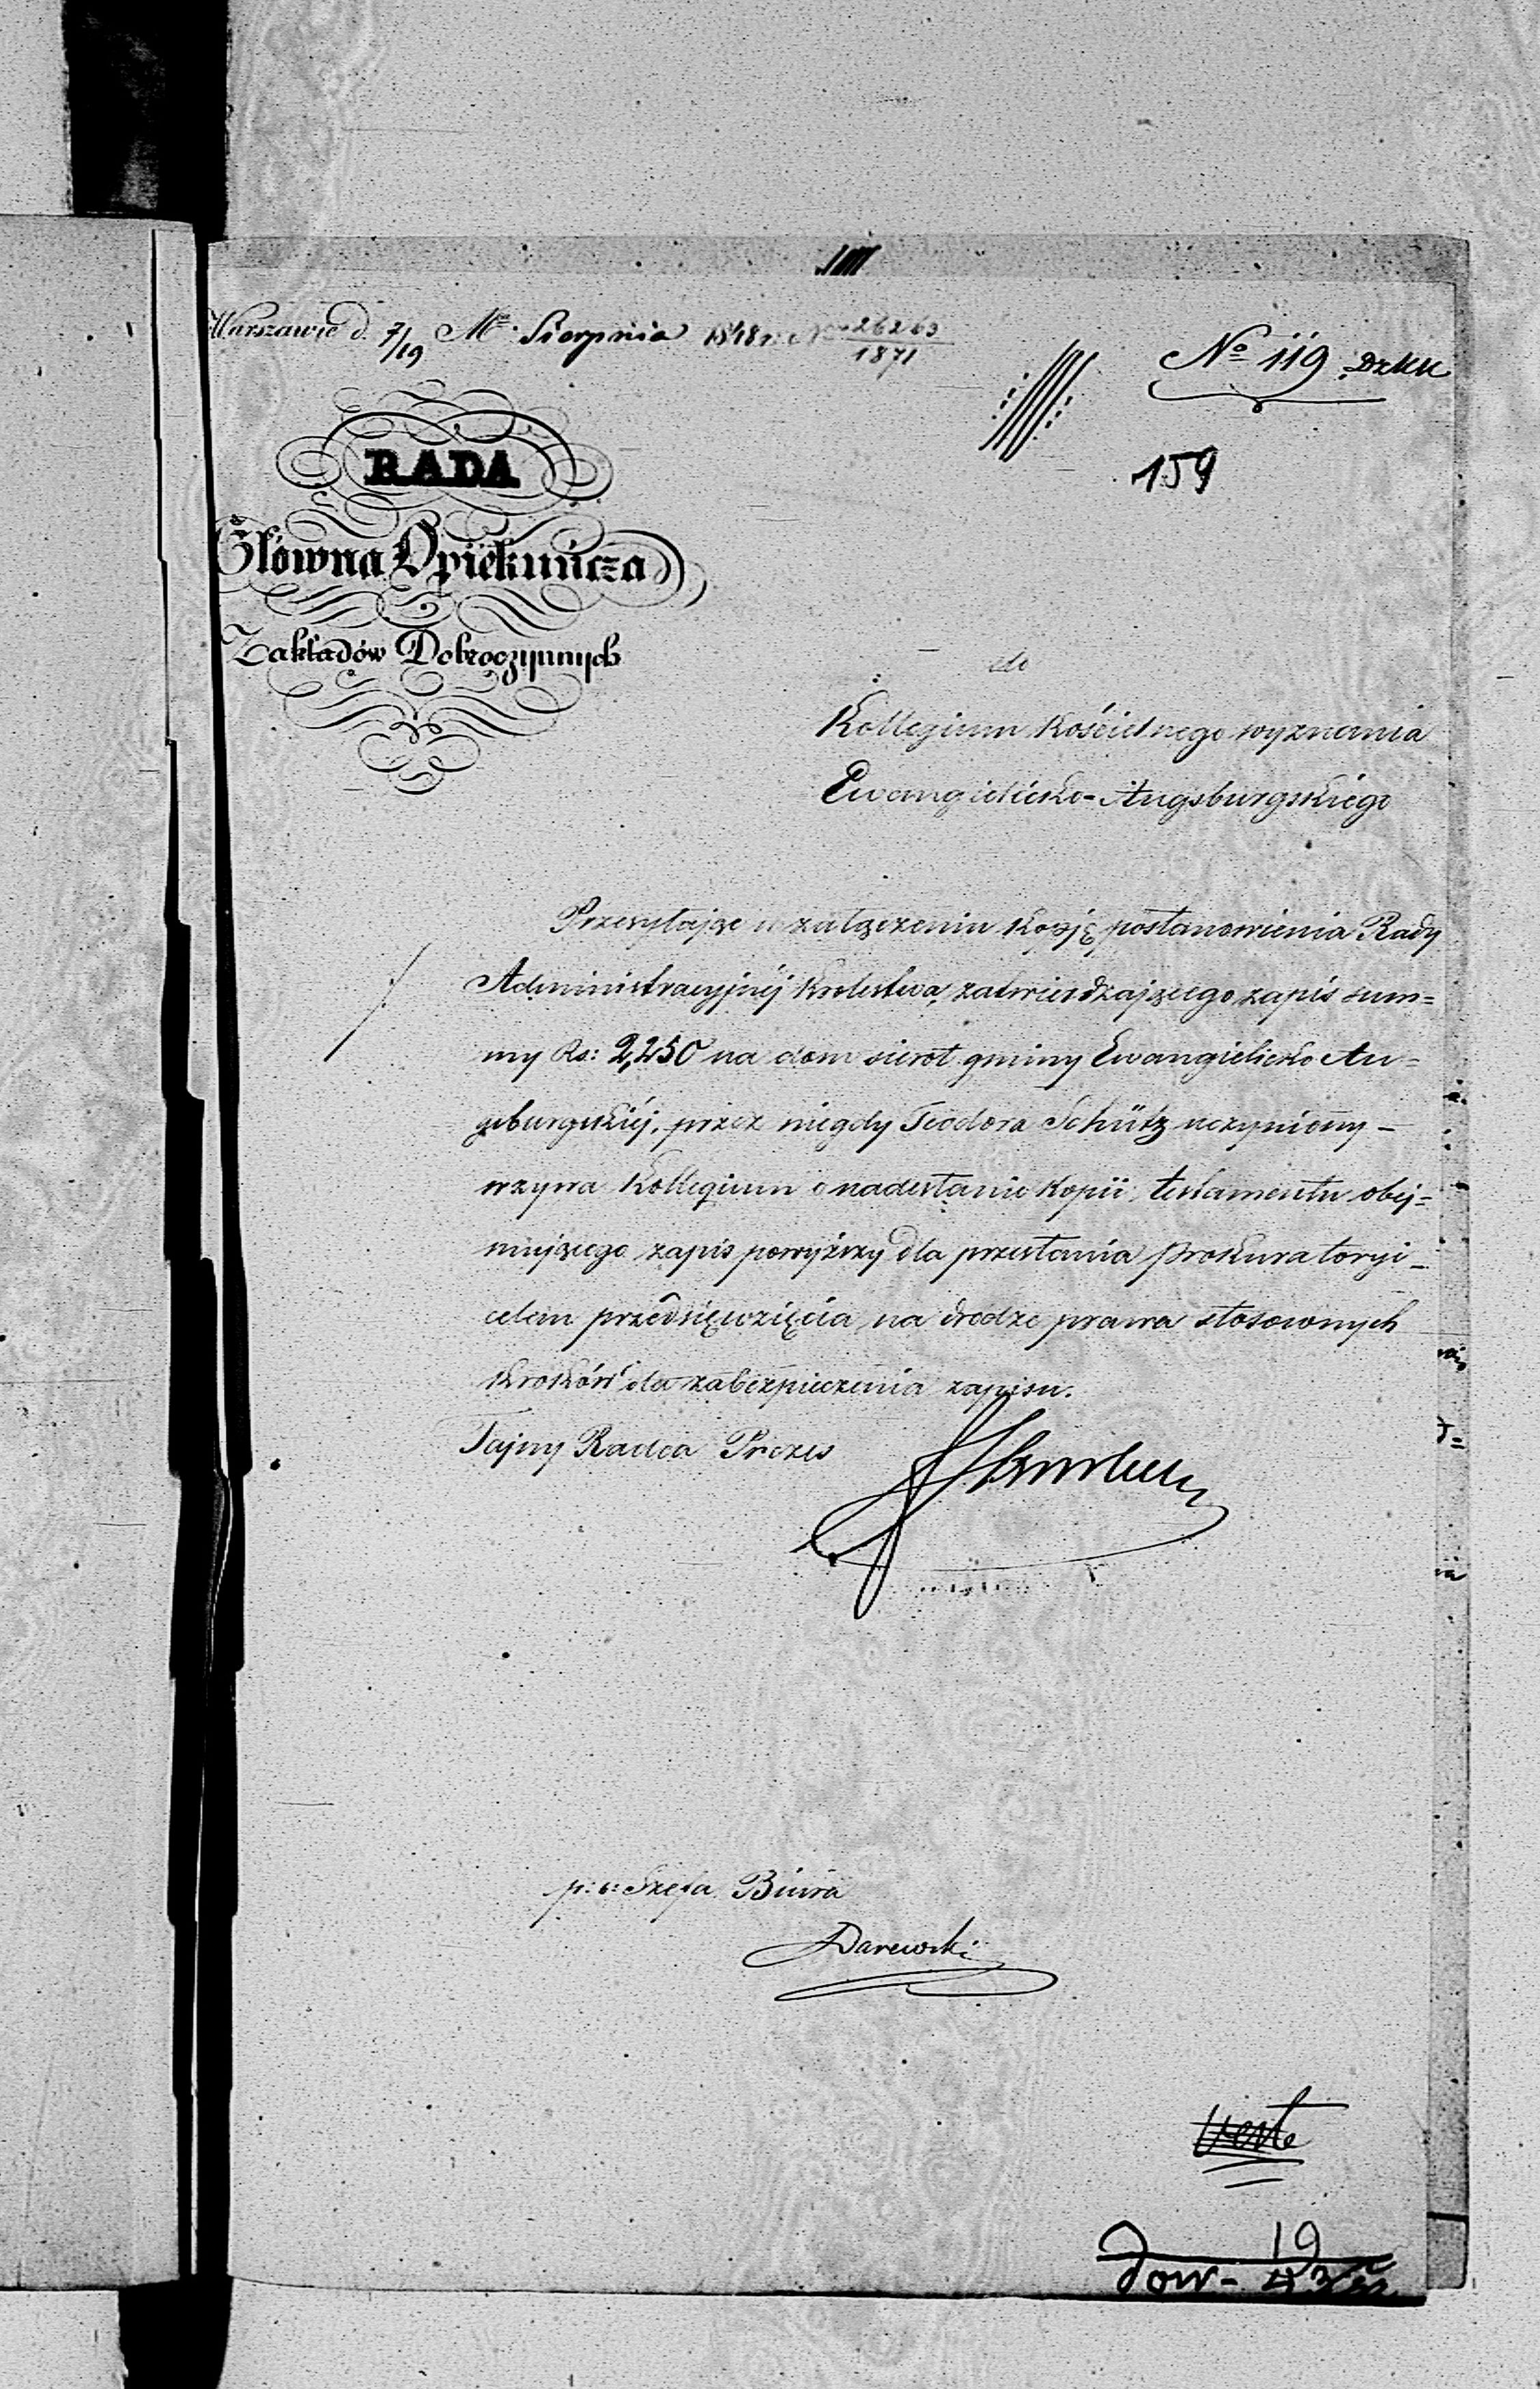 Warszawie d. 7/19 Mca Sierpnia 1848 r. No 26263/1871
No 119 DzKK
159
RADA
Główna Opiekuńcza
Zakładów Dobroczynnych
do
Kollegium Kościelnego wyznania
Ewangielicko-Augsburgskiego
Przesyłając w załączeniu kopję postanowienia Rady
Administracyjnéj Królestwa, zatwierdzającego zapis sum=
my Rs: 2,250 na dom sierot gminy Ewangielicko Au-
gsburgskiéj, przez niegdy Teodora Schütz uczyniony –
wzywa Kollegium o nadesłanie kopii testamentu obej=
mującego zapis powyższy dla przesłania Prokuratoryi –
celem przedsięwzięcia na drodze prawa stosownych
kroków dla zabezpieczenia zapisu.
Tajny Radca Prezes
p: o: Szefa Biura
Darewski
verte
19
dow-